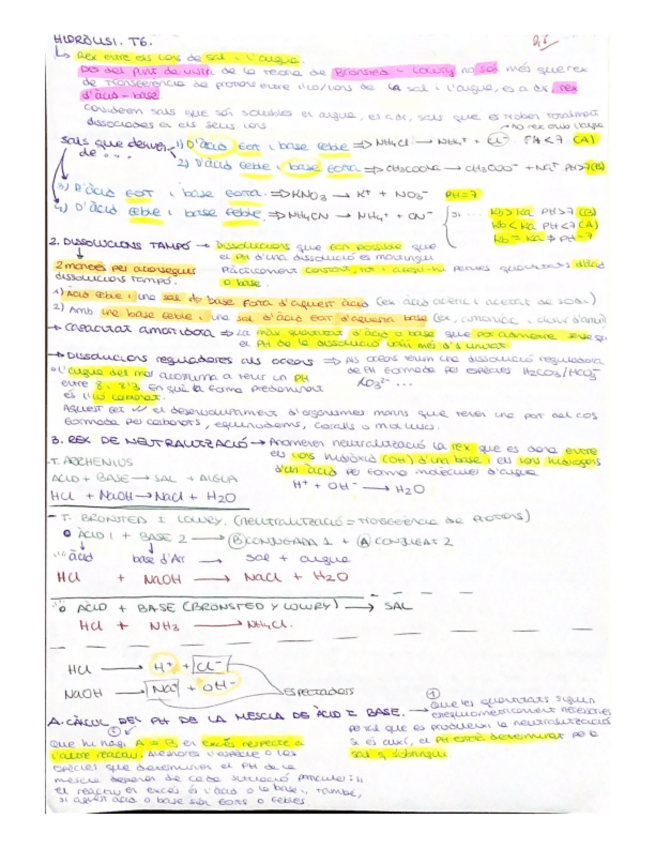 HIDRÒLISI. T6.
↳ Rex entre els ions de sal i l'aigua.
Des del punt de vista de la teoria de Brønsted - Lowry no són més que rex
de transferència de protons entre l'ió/ions de la sal i l'aigua, és a dir, rex
d'àcid-base.
Considerem sals que són solubles en aigua, és a dir, sals que es troben totalment
dissociades en els seus ions.
→ No rex amb l'aigua
sals que deriven de ... 1) D'àcid FORT i base feble ⇒ NH₄Cl → NH₄⁺ + Cl⁻ PH<7 (A)
2) D'àcid feble i base forta ⇒ CH₃COONa → CH₃COO⁻ + Na⁺ PH>7(B)
3) D'àcid FORT i base FORTA. ⇒ KNO₃ → K⁺ + NO₃⁻ PH=7
4) D'àcid feble i base feble. ⇒ NH₄CN → NH₄⁺ + CN⁻ si ... Kb>Ka PH>7 (B)
Kb<Ka PH<7 (A)
Kb=Ka ⇒ PH=7
2. DISSOLUCIONS TAMPÓ → Dissolucions que fan possible que
el PH d'una dissolució es mantingui
2 maneres per aconseguir
dissolucions tampó.
Pràcticament constant, tot i afegir-hi petites quantitats d'àcid
o base.
1) Àcid feble i una sal de base forta d'aquest àcid (ex àcid acètic i acetat de sodi)
2) Amb una base feble i una sal d'àcid fort d'aquesta base (ex, amoníac i clorur d'amoni)
→ CAPACITAT AMORTIDORA ⇒ La màx quantitat d'àcid o base que pot admetre sense que
el PH de la dissolució variï més d'1 unitat
→ Dissolucions reguladores als oceans ⇒ Als oceans tenim una dissolució reguladora
de PH formada per espècies H₂CO₃/HCO₃⁻
/CO₃²⁻ ...
• L'aigua del mar acostuma a tenir un PH
entre 8 i 8'3 en què la forma predominant
és l'ió carbonat.
Aquest fet el desenvolupament d'organismes marins que tenen una part del cos
formada per carbonats, equinoderms, coralls o mol·luscs.
3. REX DE NEUTRALITZACIÓ → Anomenem neutralització la rex que es dona entre
els ions hidròxid (OH) d'una base i els ions hidrogens
d'un àcid per formar molècules d'aigua
H⁺ + OH⁻ → H₂O
- T. ARRHENIUS
ÀCID + BASE → SAL + AIGUA
HCl + NaOH → NaCl + H₂O
- T. BRONSTED I LOWRY. (neutralització = transferència de protons)
ÀCID 1 + BASE 2 → (B) CONJUGADA 1 + (A) CONJUGAT 2
àcid base d'Arr → sal + aigua
HCl + NaOH → NaCl + H₂O
ÀCID + BASE (BRÖNSTED Y LOWRY) → SAL
HCl + NH₃ → NH₄Cl.
HCl → H⁺ + Cl⁻
NaOH → Na⁺ + OH⁻ ESPECTADORS
4. CÀLCUL DEL PH DE LA MESCLA DE ÀCID I BASE. → ① Que les quantitats siguin
estequiomètricament necessàries
per tal que es produeixi la neutralització
si és així, el PH estarà determinat per la
sal q s'obtingui
②
Que hi hagi A o B en excés respecte a
l'altre reactiu. Aleshores l'espècie o les
espècies que determinaran el PH de la
mescla depenen de cada situació particular: si
el reactiu en excés és l'àcid o la base i, també,
si aquest àcid o base són forts o febles